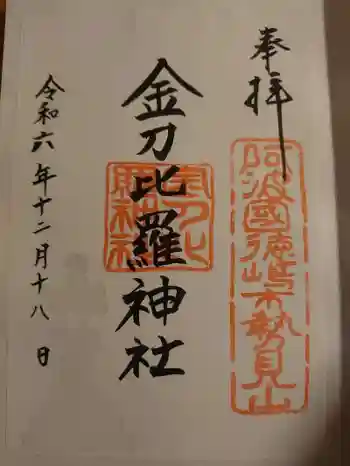 奉拝
阿波國徳島市勢見山
金刀比羅神社
金刀比羅神社
令和六年十二月十八日